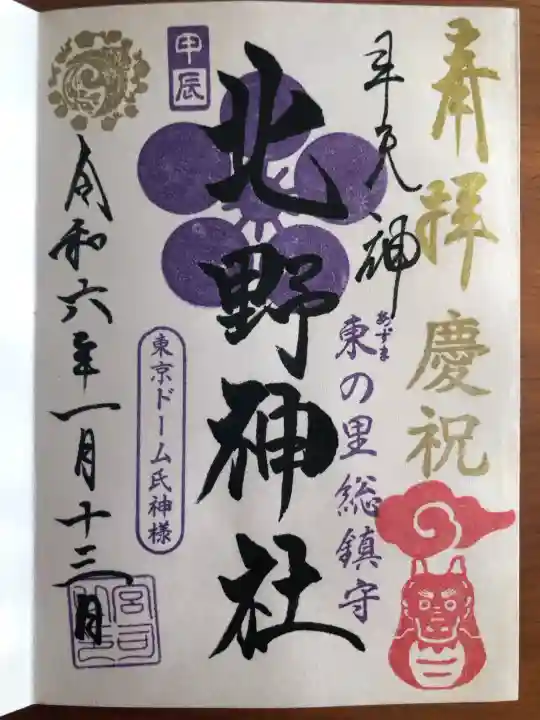 奉拝
慶祝
牛天神
東の里総鎮守
あずま
北野神社
甲辰
東京ドーム氏神様
令和六年一月十三日